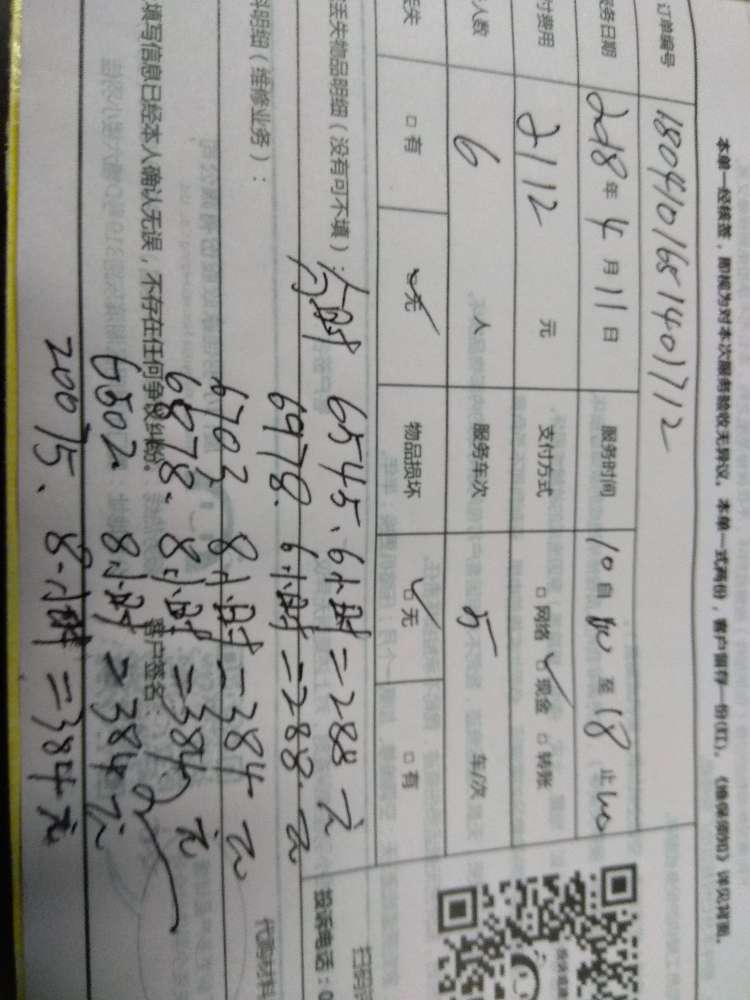 本单一经核签，即视为对本次服务验收无异议。本单一式两份，客户留存一份(红)。《维保须知》详见背面。
订单编号 1804101651401712
服务日期 2018年4月11日 服务时间 10自 至18止
付费用 2112 元 支付方式 □网络 ☑现金 □转账
人数 6 人 服务车次 5 车/次
丢失 □有 ☑无 物品损坏 ☑无 □有
丢失物品明细（没有可不填）：
6545、6小时=288元
6978、6小时=288元
料明细（维修业务）：
6703 8小时=384元
代购材料
6878、8小时=384元
填写信息已经本人确认无误，不存在任何争议纠纷。 客户签名：
6502、8小时=384元
20075、8小时=384元
扫码
投诉电话：0